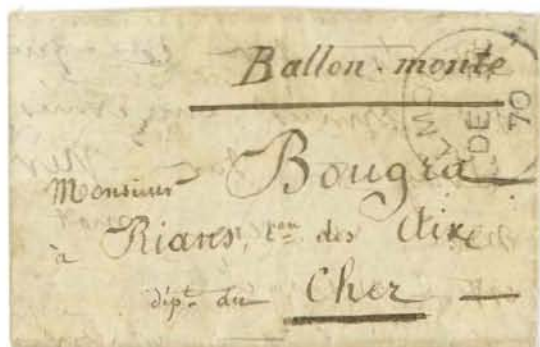 Ballon monté
Monsieur Bougra
à Rians, con des Aix
dépt. du Cher
DE
70